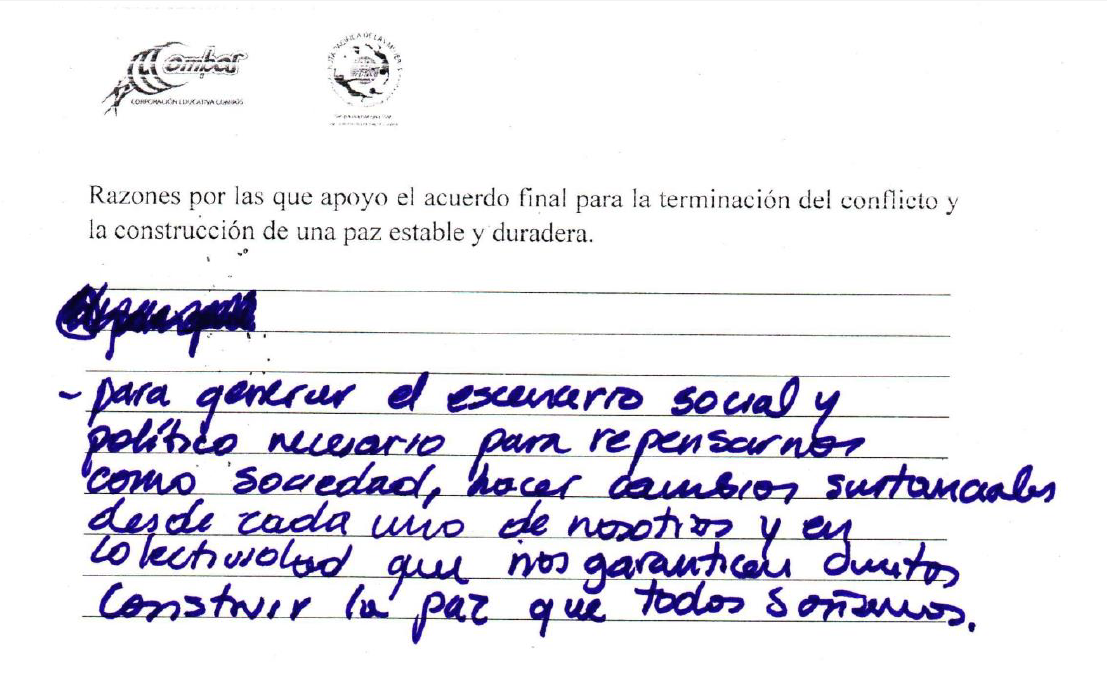 Combos
CORPORACIÓN EDUCATIVA COMBOS
Razones por las que apoyo el acuerdo final para la terminación del conflicto y
la construcción de una paz estable y duradera.
- para generar el escenario social y
político necesario para repensarnos
como sociedad, hacer cambios sustanciales
desde cada uno de nosotros y en
colectividad que nos garanticen
construir la paz que todos soñamos.